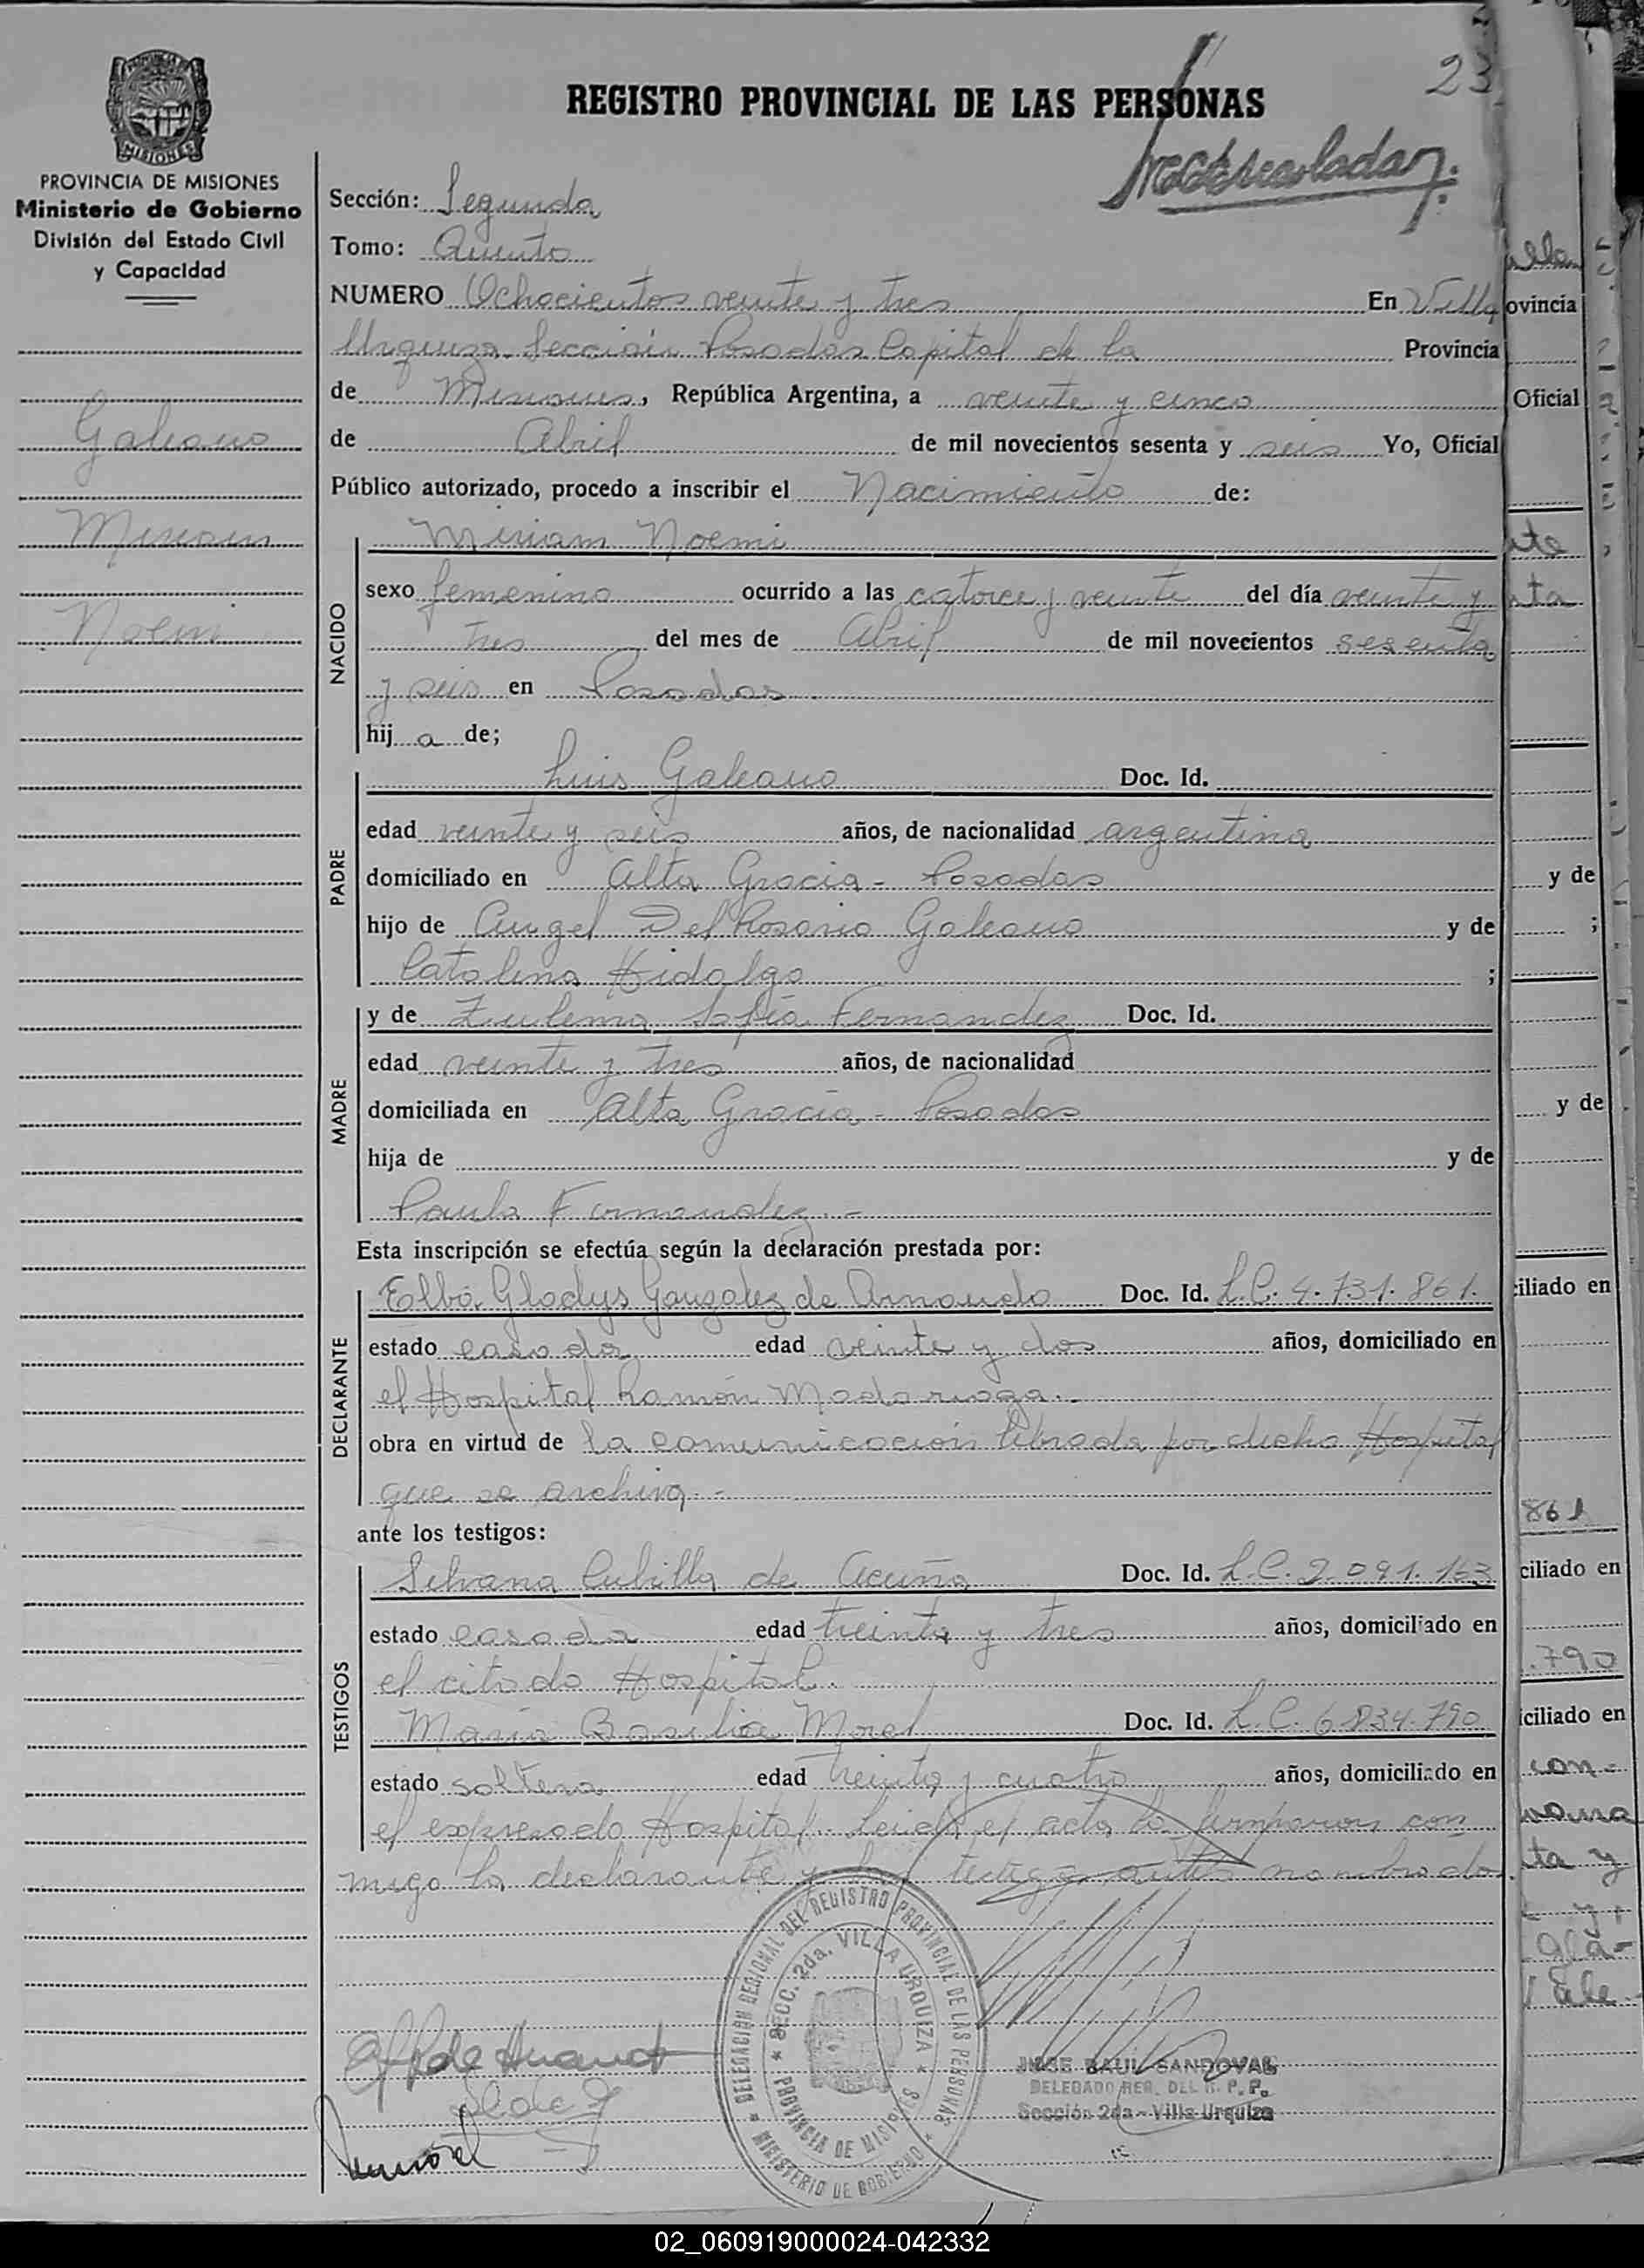 23
REGISTRO PROVINCIAL DE LAS PERSONAS
MISIONES
PROVINCIA DE MISIONES
Ministerio de Gobierno
División del Estado Civil
y Capacidad
Galeano
Miriam
Noemi
Sección: Segunda
Tomo: Quinto
NUMERO Ochocientos veinte y tres En Villa
Urquiza Sección Posadas Capital de la Provincia
de Misiones, República Argentina, a veinte y cinco
de Abril de mil novecientos sesenta y seis Yo, Oficial
Público autorizado, procedo a inscribir el Nacimiento de:
NACIDO
Miriam Noemi
sexo femenino ocurrido a las catorce y veinte del día veinte y
tres del mes de Abril de mil novecientos sesenta
y seis en Posadas.
hij a de;
PADRE
Luis Galeano Doc. Id.
edad veinte y seis años, de nacionalidad argentina
domiciliado en Alta Gracia - Posadas
hijo de Angel Del Rosario Galeano y de
Catalina Hidalgo ;
MADRE
y de Zulema Sofia Fernandez Doc. Id.
edad veinte y tres años, de nacionalidad
domiciliada en Alta Gracia - Posadas
hija de y de
Paula Fernandez.-
Esta inscripción se efectúa según la declaración prestada por:
DECLARANTE
Elba Gladys Gonzalez de Doc. Id. L.C. 4.731.861.
estado casada edad veinte y dos años, domiciliado en
el Hospital Ramón Madariaga.
obra en virtud de la comunicación librada por dicho Hospital
que se archiva.-
ante los testigos:
TESTIGOS
Silvana Cubilla de Acuña Doc. Id. L.C. 2.091.163
estado casada edad treinta y tres años, domiciliado en
el citado Hospital.
María Basilia Morel Doc. Id. L.C. 6.834.790
estado soltera edad treinta y cuatro años, domiciliado en
el expresado Hospital. Leida el acta la firmaron con
migo la declarante y los testigos antes nombrados.
DELEGACIÓN REGIONAL DEL REGISTRO PROVINCIAL DE LAS PERSONAS
SECC. 2da. VILLA URQUIZA
PROVINCIA DE MISIONES
MINISTERIO DE GOBIERNO
JOSE RAUL SANDOVAL
DELEGADO REG. DEL R. P. P.
Sección 2da - Villa Urquiza
ovincia
Oficial
y de
;
y de
ciliado en
861
ciliado en
.790
iciliado en
con-
ta y
02_060919000024-042332